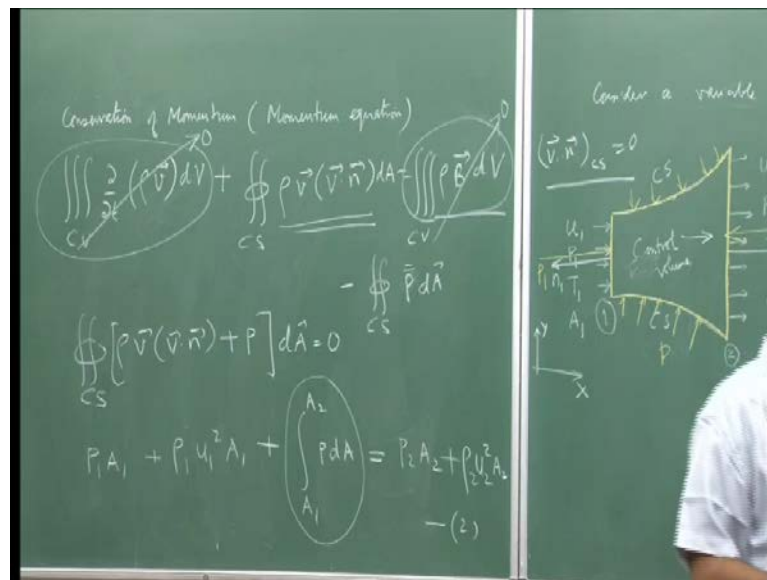 Conservation of Momentum (Momentum equation)
∭_CV ∂/∂t (ρv⃗)dV → 0 + ∯_CS ρv⃗(v⃗.n⃗)dA - ∭_CV ρB⃗dV → 0
- ∯_CS P̿ dA⃗
∯_CS [ρv⃗(v⃗.n⃗) + P] dA⃗ = 0
P₁A₁ + ρ₁u₁²A₁ + ∫_A₁^A₂ PdA = P₂A₂ + ρ₂u₂²A₂
- (2)
Consider a variable
(v⃗.n⃗)_CS = 0
CS
u₁
P₁
P₁ n₁ T₁
A₁
①
Control
volume
CS
P
②
Y
X